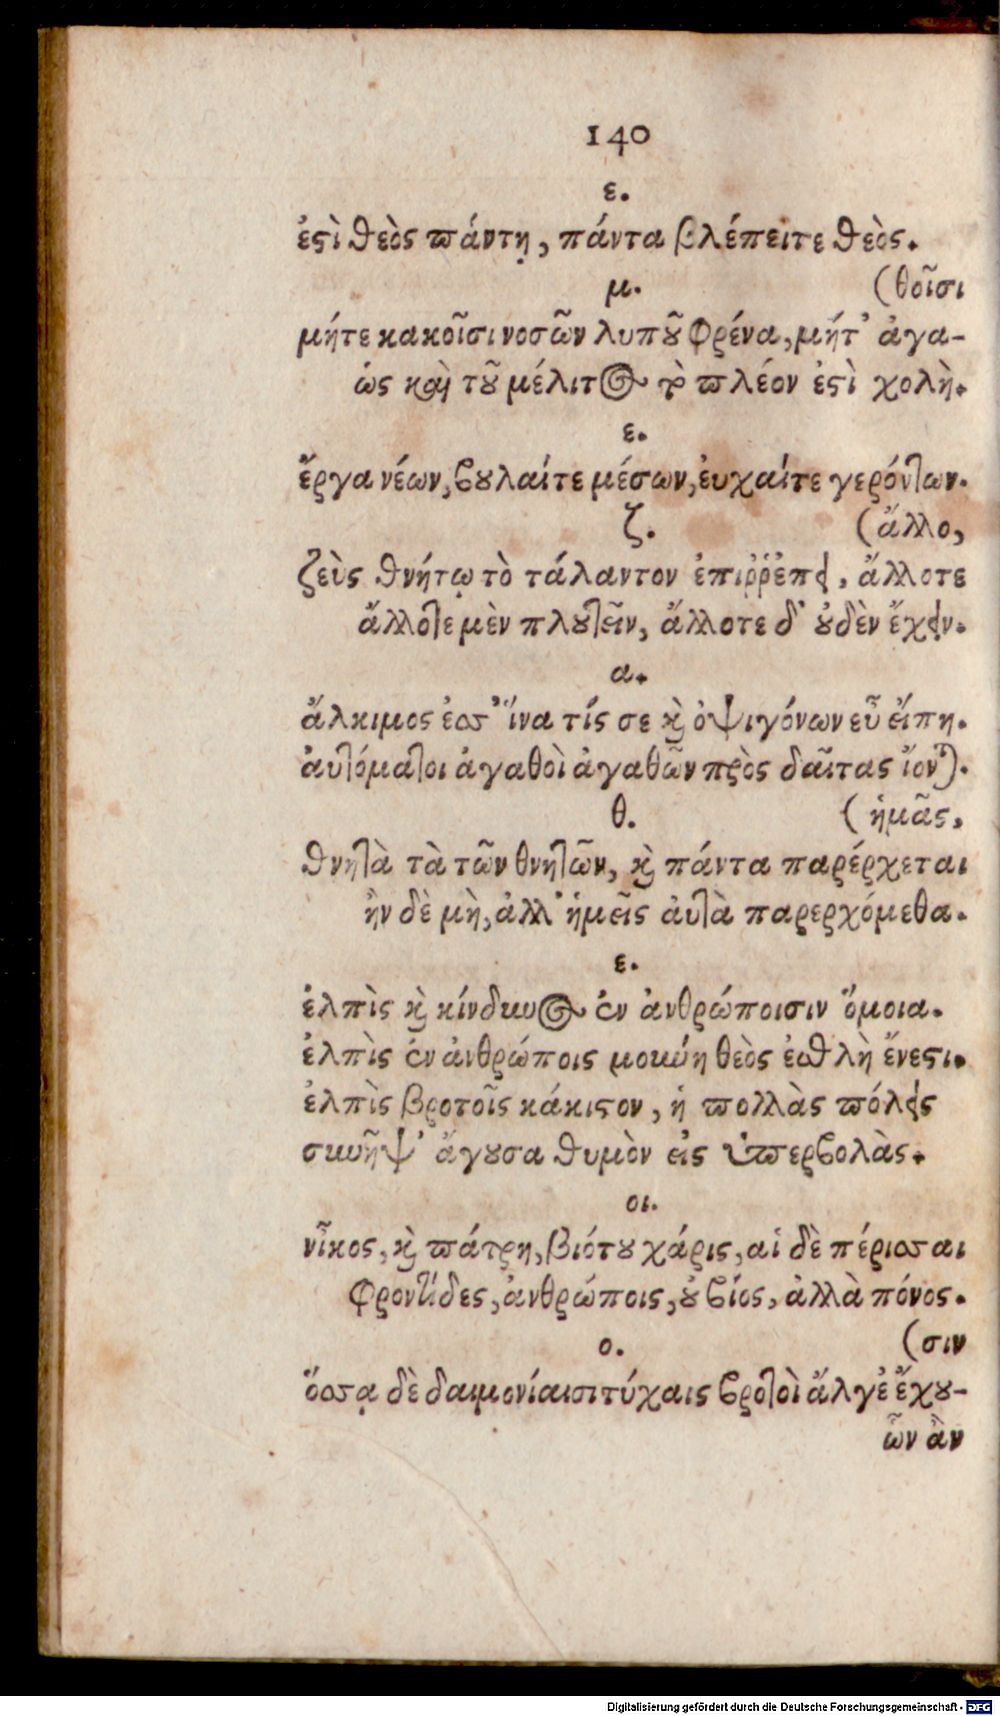 140
ε.
ἐστὶ θεὸς πάντῃ, πάντα βλέπειτε θεὸς.
μ. (θοῖσι
μήτε κακοῖσι νοσῶν λυποῦ φρένα, μήτ' ἀγα-
ὡς καὶ τοῦ μέλιτος τὸ πλέον ἐστὶ χολὴ.
ε.
ἔργα νέων, βουλαίτε μέσων, ἐυχαίτε γερόντων.
ζ. (ἄλλο,
ζεὺς θνήτῳ τὸ τάλαντον ἐπιῤῥἐπει, ἄλλοτε
ἄλλοτε μὲν πλουτεῖν, ἄλλοτε δ' οὐδὲν ἔχειν.
α.
ἄλκιμος ἐσσ' ἵνα τίς σε καὶ ὀψιγόνων εὖ εἴπη.
ἀυτόματοι ἀγαθοὶ ἀγαθῶν πρὸς δαῖτας ἴονται.
θ. (ἡμᾶς,
θνητὰ τὰ τῶν θνητῶν, καὶ πάντα παρέρχεται
ἢν δὲ μὴ, ἀλλ' ἡμεῖς ἀυτὰ παρερχόμεθα.
ε.
ἐλπὶς καὶ κίνδυνος ἐν ἀνθρώποισιν ὅμοια.
ἐλπὶς ἐν ἀνθρώποις μούνη θεὸς ἐσθλὴ ἔνεστι.
ἐλπὶς βροτοῖς κάκιστον, ἡ πολλὰς πόλεις
συνῆψ' ἄγουσα θυμὸν εἰς ὑπερβολὰς.
οι.
νῖκος, καὶ πάτρη, βιότου χάρις, αἱ δὲ πέρισσαι
φροντίδες, ἀνθρώποις, οὐ βίος, ἀλλὰ πόνος.
ο. (σιν
ὅσσα δὲ δαιμονίαισι τύχαις βροτοὶ ἄλγἐ ἔχου-
ὧν ἂν
Digitalisierung gefördert durch die Deutsche Forschungsgemeinschaft - DFG